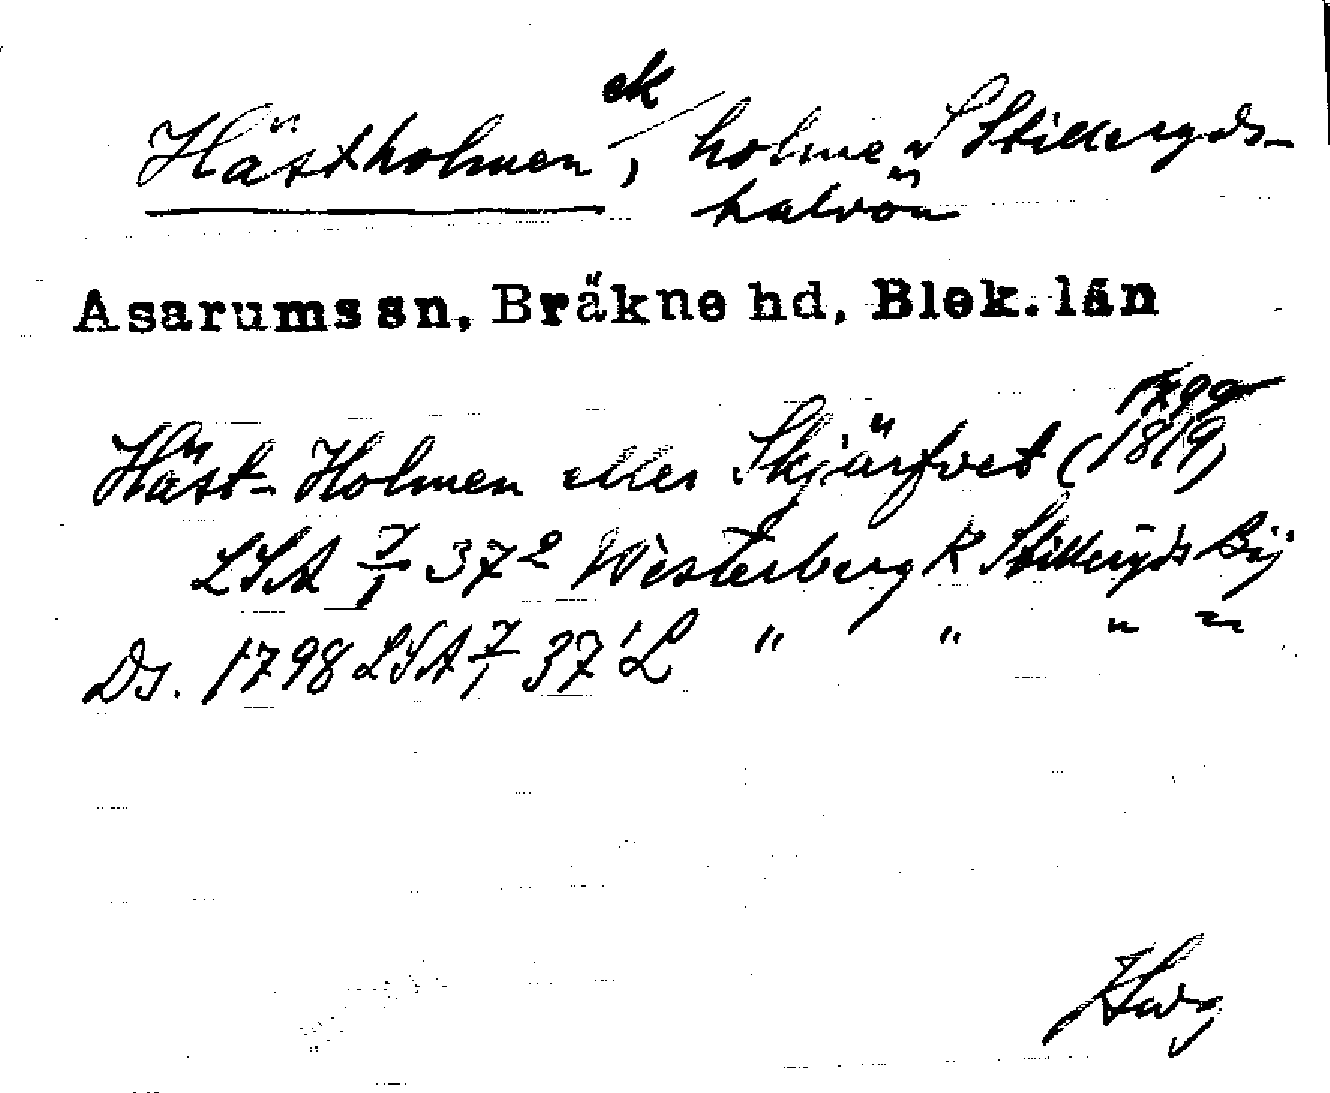 ek
Hästholmen, holme v Stilleryds-
halvön
Asarums sn, Bräkne hd, Blek. län
Häst-Holmen eller Skjärfvet (1819)
LSA 7/1 37² Westerberg k Stilleryds By
Ds. 1798 LSA 7/1 37¹ L " " " "